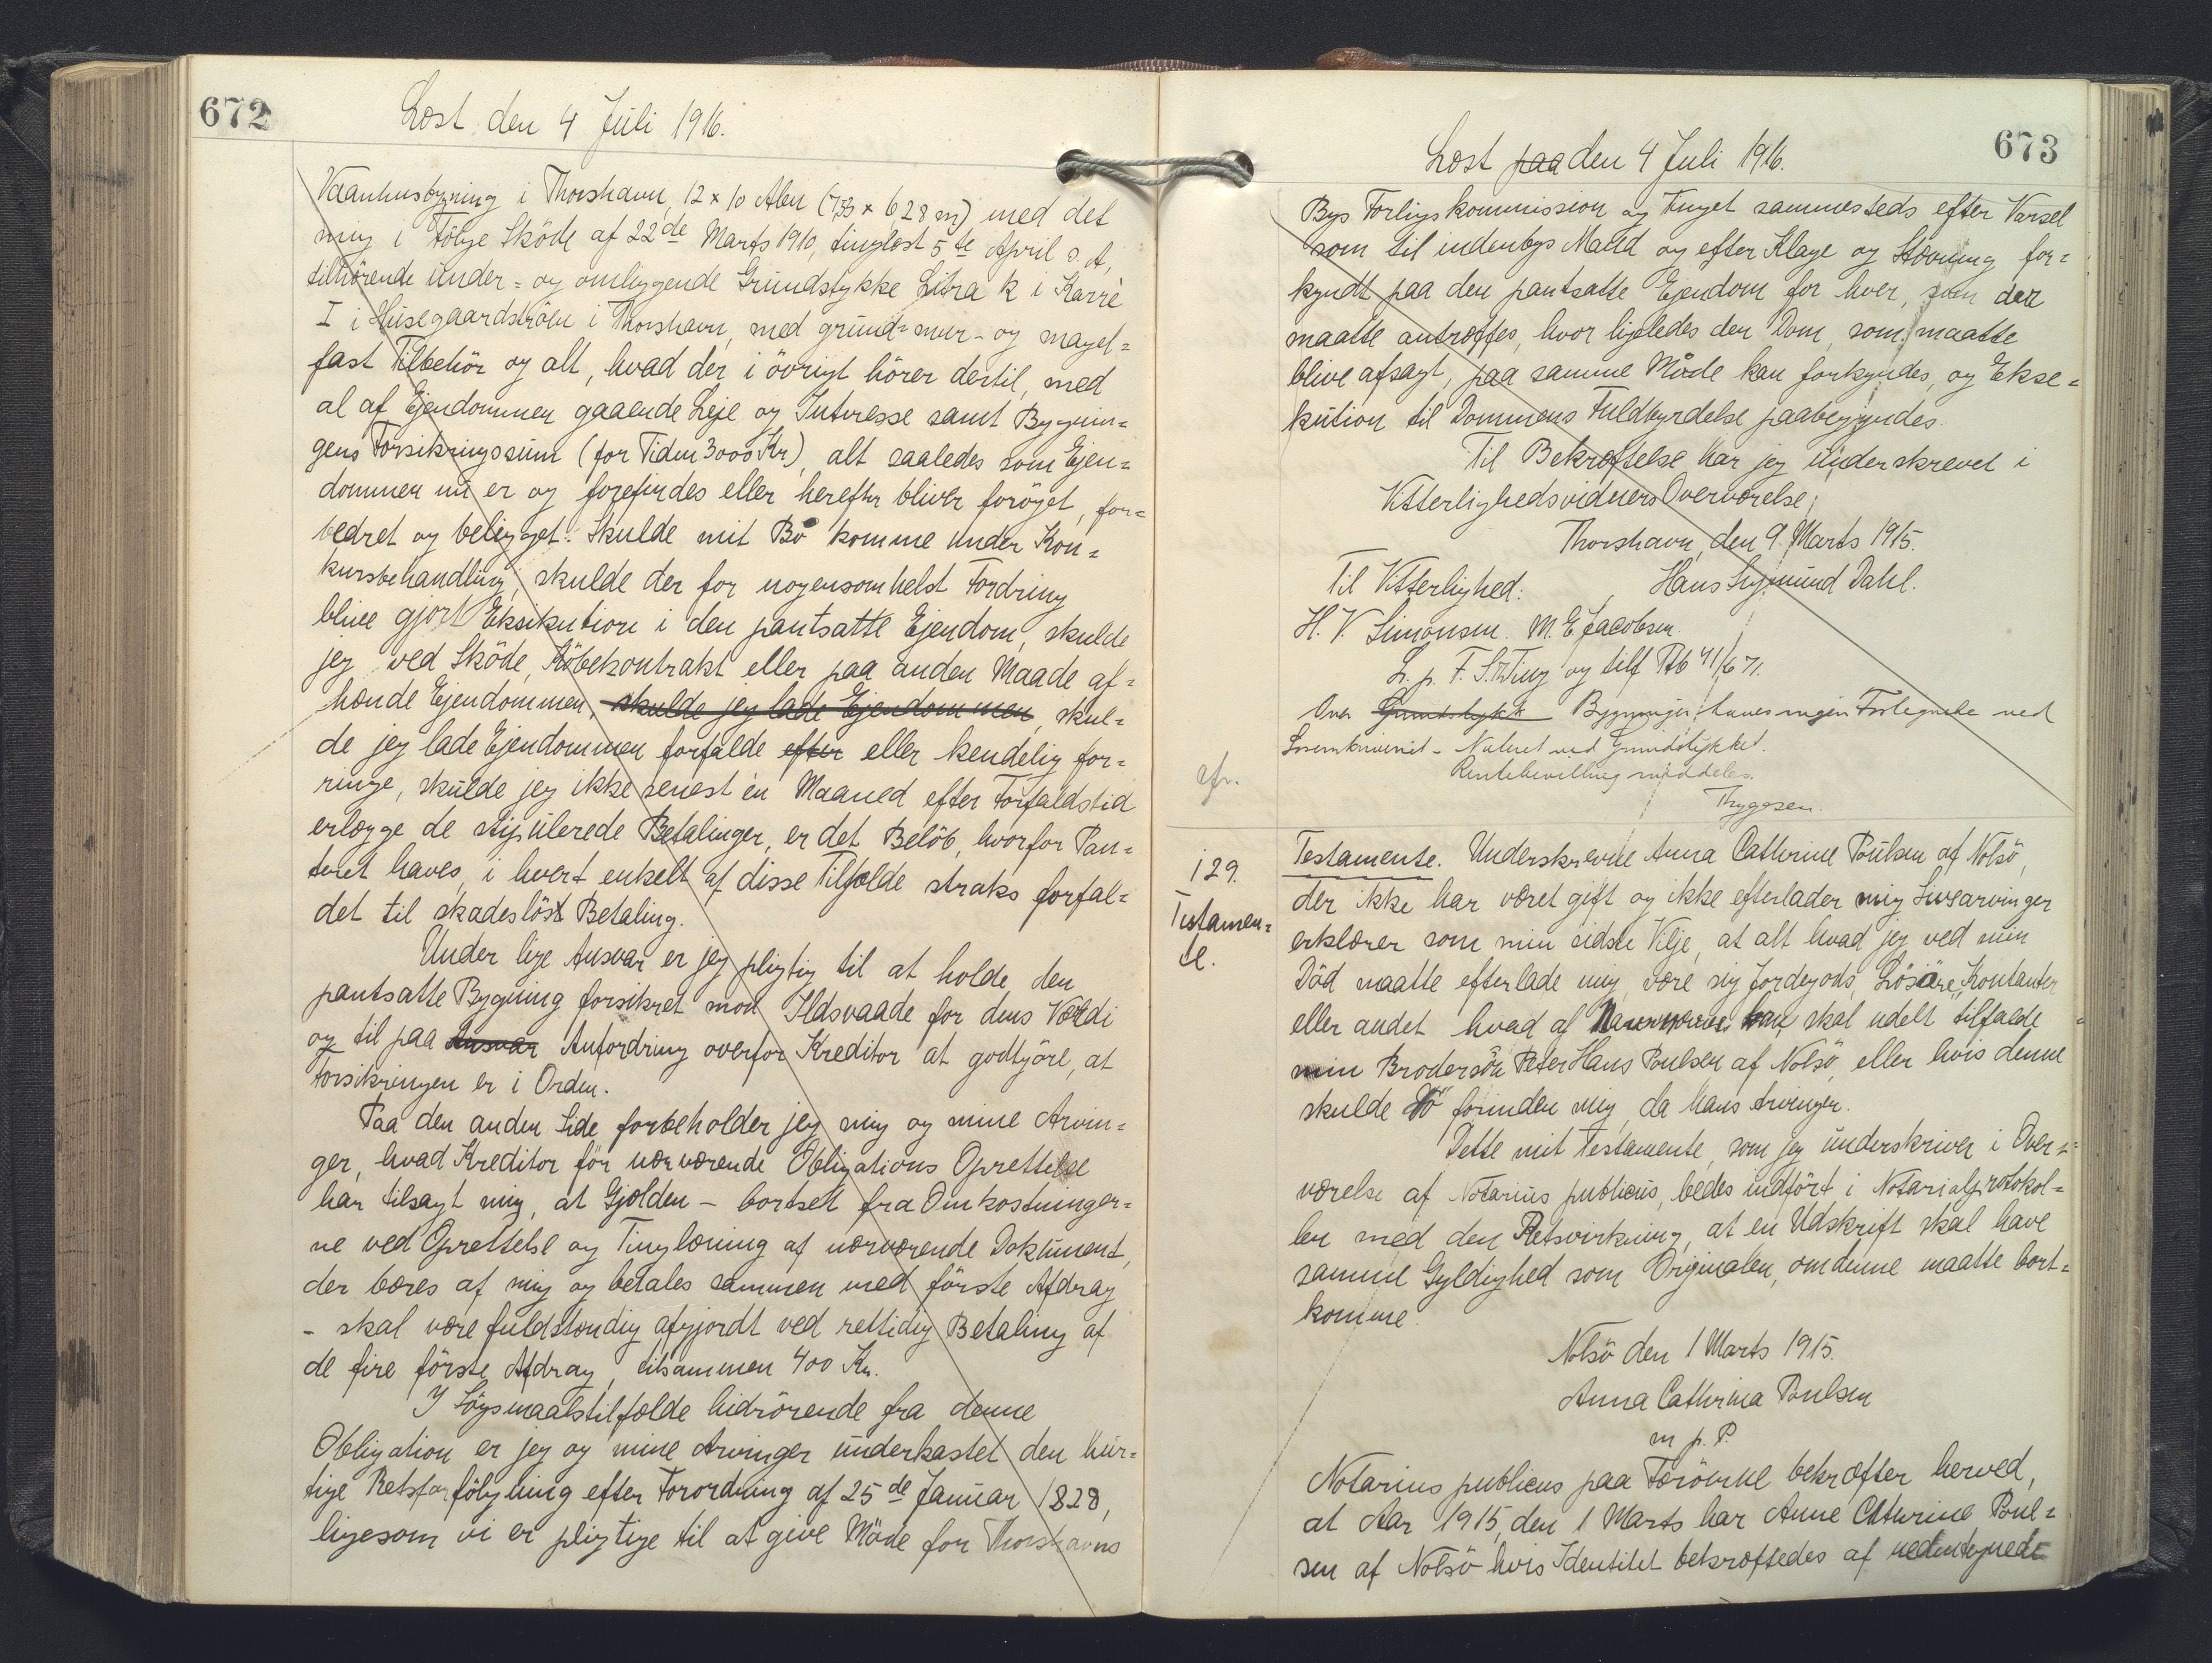 672
Læst den 4 Juli 1916.
Vaanhusbygning i Thorshavn, 12 x 10 Alen (753 x 628 m) med det
mig i Følge Skøde af 22de Marts 1910, tinglæst 5te April s. A,
tilhørende under= og omliggende Grundstykke Litra k i Karré
I i Husegaardstrøen i Thorshavn, med grund= mur- og nagel=
fast Tilbehör og alt, hvad der i övrigt hörer dertil, med
al af Ejendommen gaaende Leje og Interesse samt Bygnin=
gens Forsikringssum (for Tiden 3000 Kr), alt saaledes som Ejen=
dommen nu er og forefindes eller herefter bliver foröget, for=
bedret og bebygget. Skulde mit Bo komme under Kon=
kursbehandling, skulde der for nogensomhelst Fordring
blive gjort Eksekution i den pantsatte Ejendom, skulde
jeg ved Sköde, Köbekontrakt eller paa anden Maade af=
hænde Ejendommen, skulde jeg lade Ejendommen, skul=
de jeg lade Ejendommen forfalde efter eller kendelig for=
ringe, skulde jeg ikke senest én Maaned efter Forfaldstid
erlægge de stipulerede Betalinger, er det Belöb, hvorfor Pan=
teret haves, i hvert enkelt af disse Tilfælde straks forfal=
det til skadeslöst Betaling.
Under lige Ansvar er jeg pligtig til at holde den
pantsatte Bygning forsikret mod Ildsvaade for dens Værdi
og til paa Ansvar Anfordring overfor Kreditor at godtgjöre, at
Forsikringen er i Orden.
Paa den anden Side forbeholder jeg mig og mine Arvin=
ger, hvad Kreditor för nærværende Obligations Oprettelse
har tilsagt mig, at Gjælden - bortset fra Omkostninger=
ne ved Oprettelse og Tinglæsning af nærværende Dokument,
der bæres af mig og betales sammen med förste Afdrag
- skal være fuldstændig afgjordt ved rettidig Betaling af
de fire förste Afdrag, tilsammen 400 Kr.
I Sögsmaalstilfælde hidrörende fra denne
Obligation er jeg og mine Arvinger underkastet den hur=
tige Retsforfölgning efter Forordning af 25de Januar 1828,
ligesom vi er pligtige til at give Möde for Thorshavns
673
Læst paa den 4 Juli 1916.
Bys Forligskommission og Tinget sammesteds efter Varsel
som til indenbys Mænd og efter Klage og Stævning for=
kyndt paa den pantsatte Ejendom for hver, som der
maatte antræffes, hvor ligeledes den Dom, som maatte
blive afsagt, paa samme Maade kan forkyndes, og Ekse=
kution til Dommens Fuldbyrdelse paabegyndes.
Til Bekræftelse har jeg underskrevet i
Vitterlighedsvidners Overværelse.
Thorshavn, den 9. Marts 1915.
Til Vitterlighed: Hans Sigmund Dahl.
H. V. Simonsen. M. E Jacobsen.
L. p. F. S. Ting og tilf Ptb 41/671.
Over Grundstykk Bygningen haves ingen Fortegnelse ved
Sorenskriveriet - Noteret ved Grundstykket.
Rentebevilling meddeles.
Thygesen.
cfr.
129.
Testamen=
te.
Testamente. Underskrevne Anna Cathrine Poulsen af Nolsö,
der ikke har været gift og ikke efterlader mig Livsarvinger
erklærer som min sidste Vilje, at alt hvad jeg ved min
Död maatte efterlade mig, være sig Jordegods, Lösöre, Kontanter
eller andet hvad af Nævnes kan, skal udelt tilfalde
min Brodersön Peter Hans Poulsen af Nolsö, eller hvis denne
skulde dö forinden mig, da hans Arvinger.
Dette mit Testamente, som jeg underskriver i Over=
værelse af Notarius publicus, bedes indfört i Notarialprotokol=
len med den Retsvirkning, at en Udskrift skal have
samme Gyldighed som Originalen, om denne maatte bort=
komme.
Nolsö den 1 Marts 1915.
Anna Cathrina Poulsen
m. p. P.
Notarius publicus paa Færöerne bekræfter herved,
at Aar 1915, den 1 Marts har Anne Cathrine Poul=
sen af Nolsö hvis Identitet bekræftedes af nedentegnede